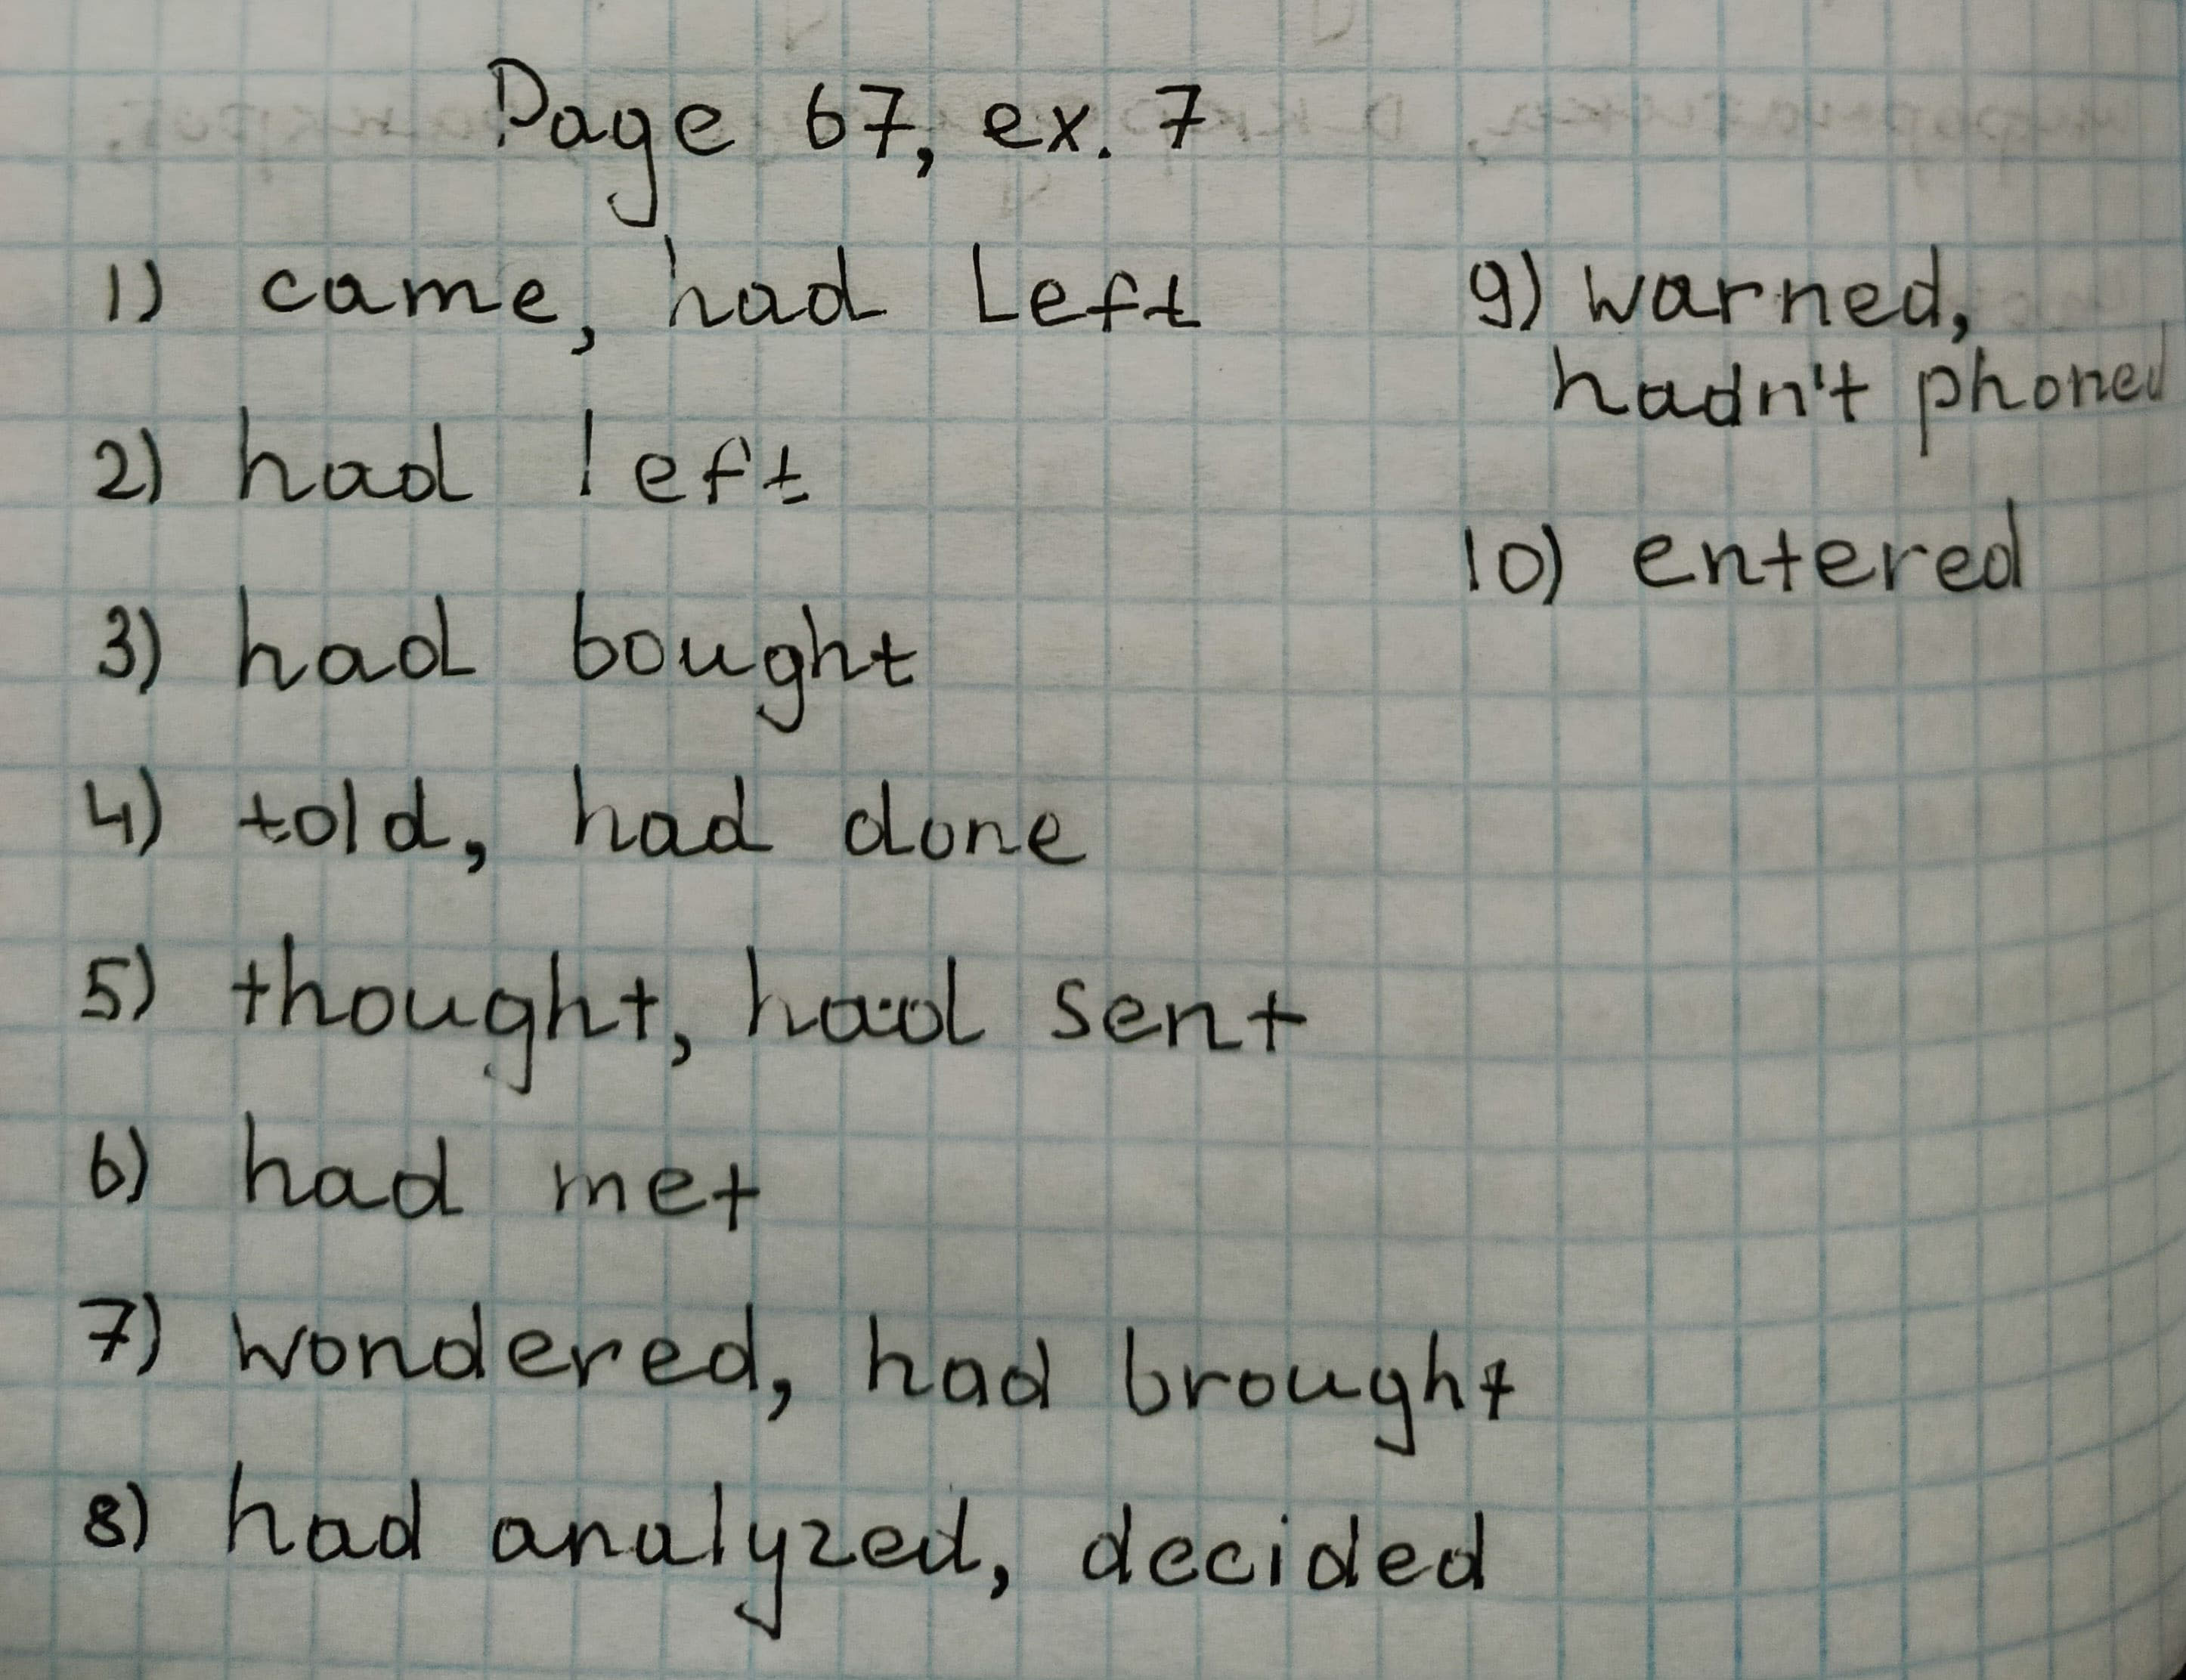 Page 67, ex. 7
1) came, had left
2) had left
3) had bought
4) told, had done
5) thought, had sent
6) had met
7) wondered, had brought
8) had analyzed, decided
9) warned,
hadn't phoned
10) entered